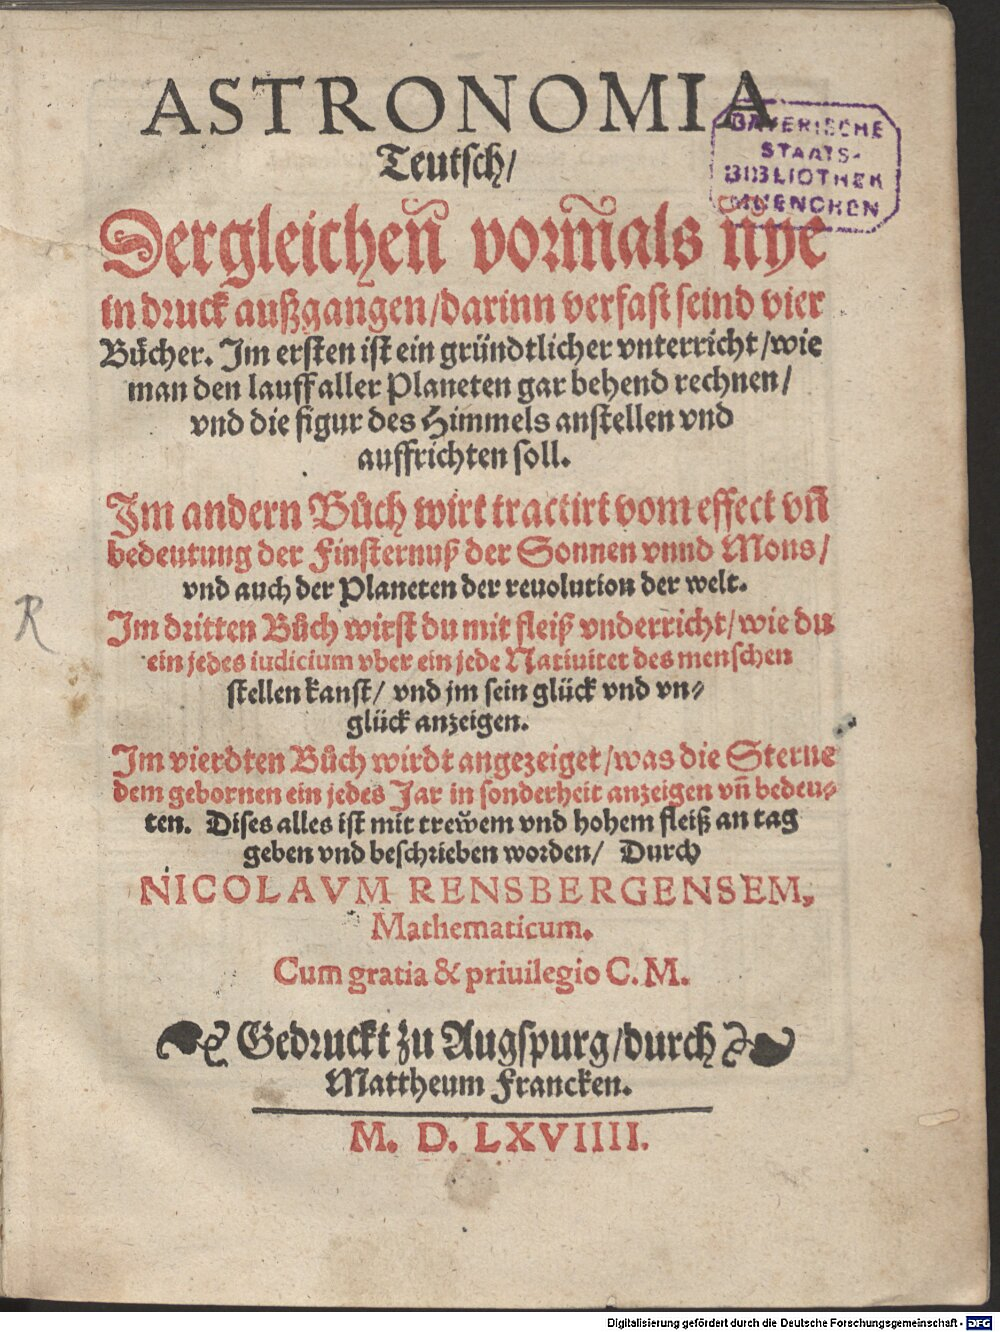 ASTRONOMIA
Teutsch/
BAYERISCHE
STAATS-
BIBLIOTHEK
MUENCHEN
Dergleichen̄ vorm̄als nye
in druck außgangen/darinn verfast seind vier
Bücher. Im ersten ist ein gründtlicher vnterricht/wie
man den lauff aller Planeten gar behend rechnen/
vnd die figur des Himmels anstellen vnd
auffrichten soll.
Im andern Bůch wirt tractirt vom effect vn̄
bedeutung der Finsternuß der Sonnen vnnd Mons/
vnd auch der Planeten der reuolution der welt.
Im dritten Bůch wirst du mit fleiß vnderricht/wie du
ein jedes iudicium vber ein jede Natiuitet des menschen
stellen kanst/ vnd jm sein glück vnd vn⸗
glück anzeigen.
R
Im vierdten Bůch wirdt angezeiget/was die Sterne
dem gebornen ein jedes Jar in sonderheit anzeigen vn̄ bedeu⸗
ten. Dises alles ist mit trewem vnd hohem fleiß an tag
geben vnd beschrieben worden/ Durch
NICOLAVM RENSBERGENSEM,
Mathematicum.
Cum gratia & priuilegio C. M.
Gedruckt zu Augspurg/durch
Mattheum Francken.
M. D. LXVIIII.
Digitalisierung gefördert durch die Deutsche Forschungsgemeinschaft - DFG